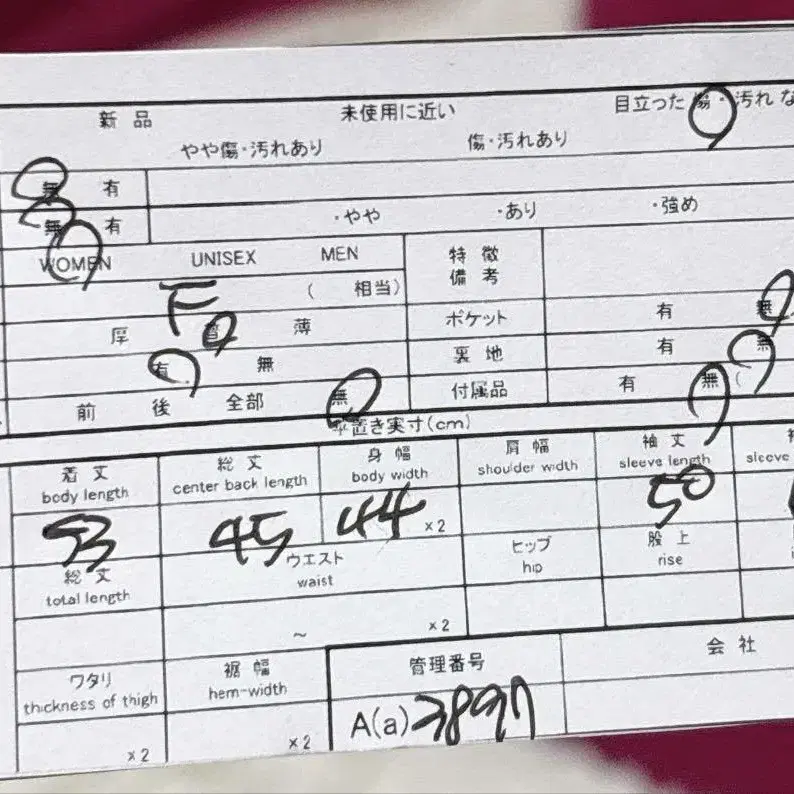 新品 未使用に近い 目立った傷・汚れな
やや傷・汚れあり 傷・汚れあり
無 有
無 有 ・やや ・あり ・強め
WOMEN UNISEX MEN 特徴
備考
F ( 相当)
厚 普 薄 ポケット 有 無
有 無 裏地 有 無
前 後 全部 無 付属品 有 無 (
平置き実寸(cm)
着丈 総丈 身幅 肩幅 袖丈
body length center back length body width shoulder width sleeve length sleeve
53 45 44 ×2 50
総丈 ウエスト ヒップ 股上
total length waist hip rise
~ ×2
ワタリ 裾幅 管理番号 会社
thickness of thigh hem-width
×2 ×2 A(a) 3897